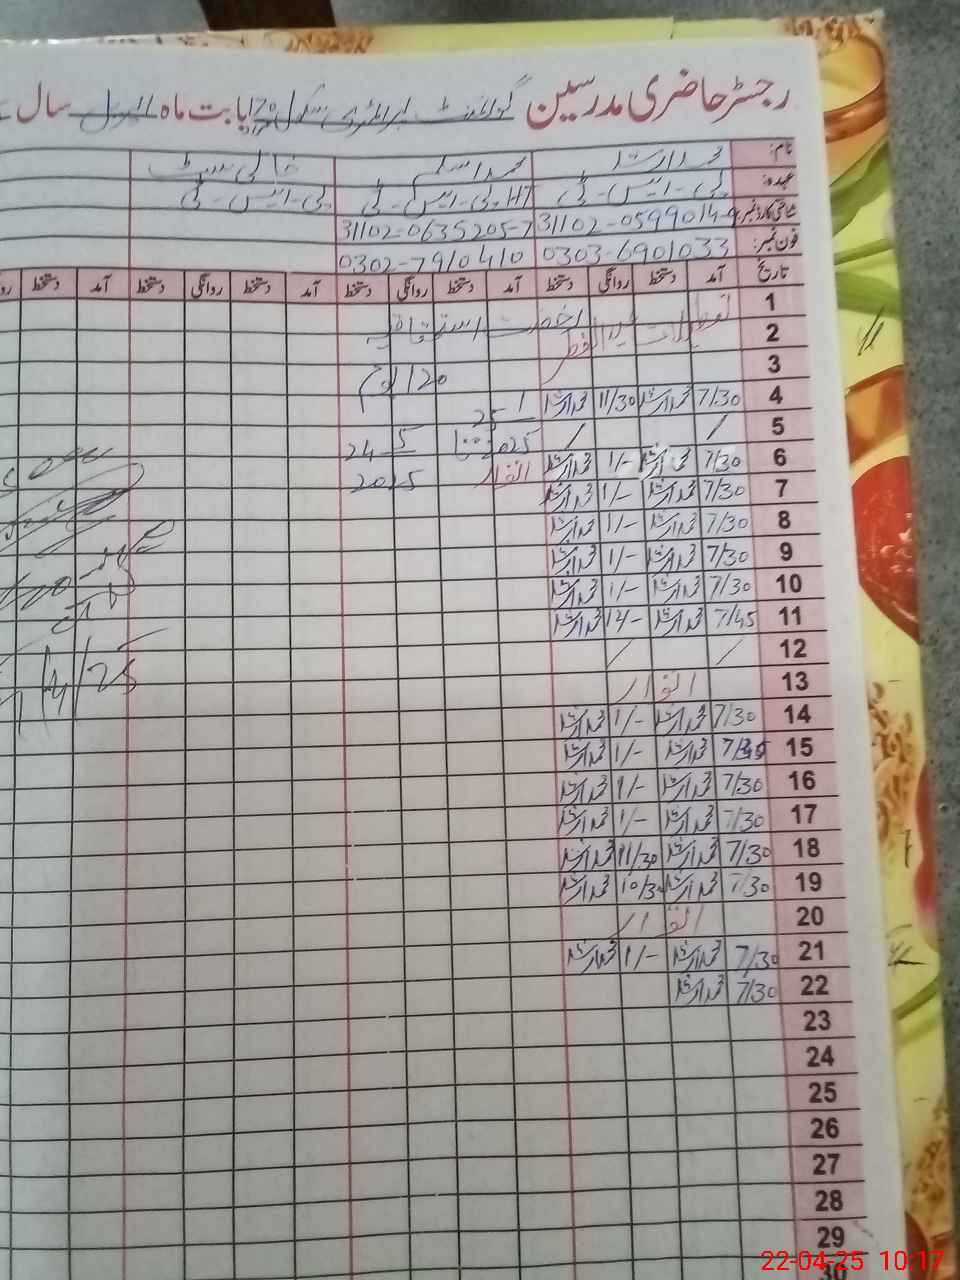 رجسٹر حاضری مدرسین گورنمنٹ پرائمری سکول بابت ماہ اپریل سال
نام: محمد ارشد محمد اسلم خالی سیٹ
عہدہ: پی-ایس-ٹی پی-ایس-ٹی HT پی-ایس-ٹی
شناختی کارڈ نمبر: 31102-0635205-7
فون نمبر: 0303-6901033 0302-7910410
تاریخ آمد دستخط روانگی دستخط آمد دستخط روانگی دستخط آمد دستخط روانگی دستخط آمد دستخط
1 تعطیلات عیدالفطر
2
3 120 یوم
4 7/30 محمد ارشد 11/30 محمد ارشد 1
5 / / 25 2025 تا 5 24
6 7/30 محمد ارشد 1/- محمد ارشد اتوار 2025
7 7/30 محمد ارشد 1/- محمد ارشد
8 7/30 محمد ارشد 1/- محمد ارشد
9 7/30 محمد ارشد 1/- محمد ارشد
10 7/30 محمد ارشد 1/- محمد ارشد
11 7/45 محمد ارشد 12/- محمد ارشد
12 / /
13 اتوار
14 7/30 محمد ارشد 1/- محمد ارشد
15 محمد ارشد 1/- محمد ارشد
16 7/30 محمد ارشد 1/- محمد ارشد
17 7/30 محمد ارشد 1/- محمد ارشد
18 7/30 محمد ارشد 11/30 محمد ارشد
19 7/30 محمد ارشد 10/30 محمد ارشد
20 اتوار
21 7/30 محمد ارشد 1/- محمد ارشد
22 7/30 محمد ارشد
23
24
25
26
27
28
29
30
22-04-25 10:17